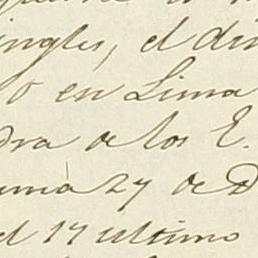 ingles, el din
o en Lima
dra de los E.
uma 27 de D
el 17 ultimo